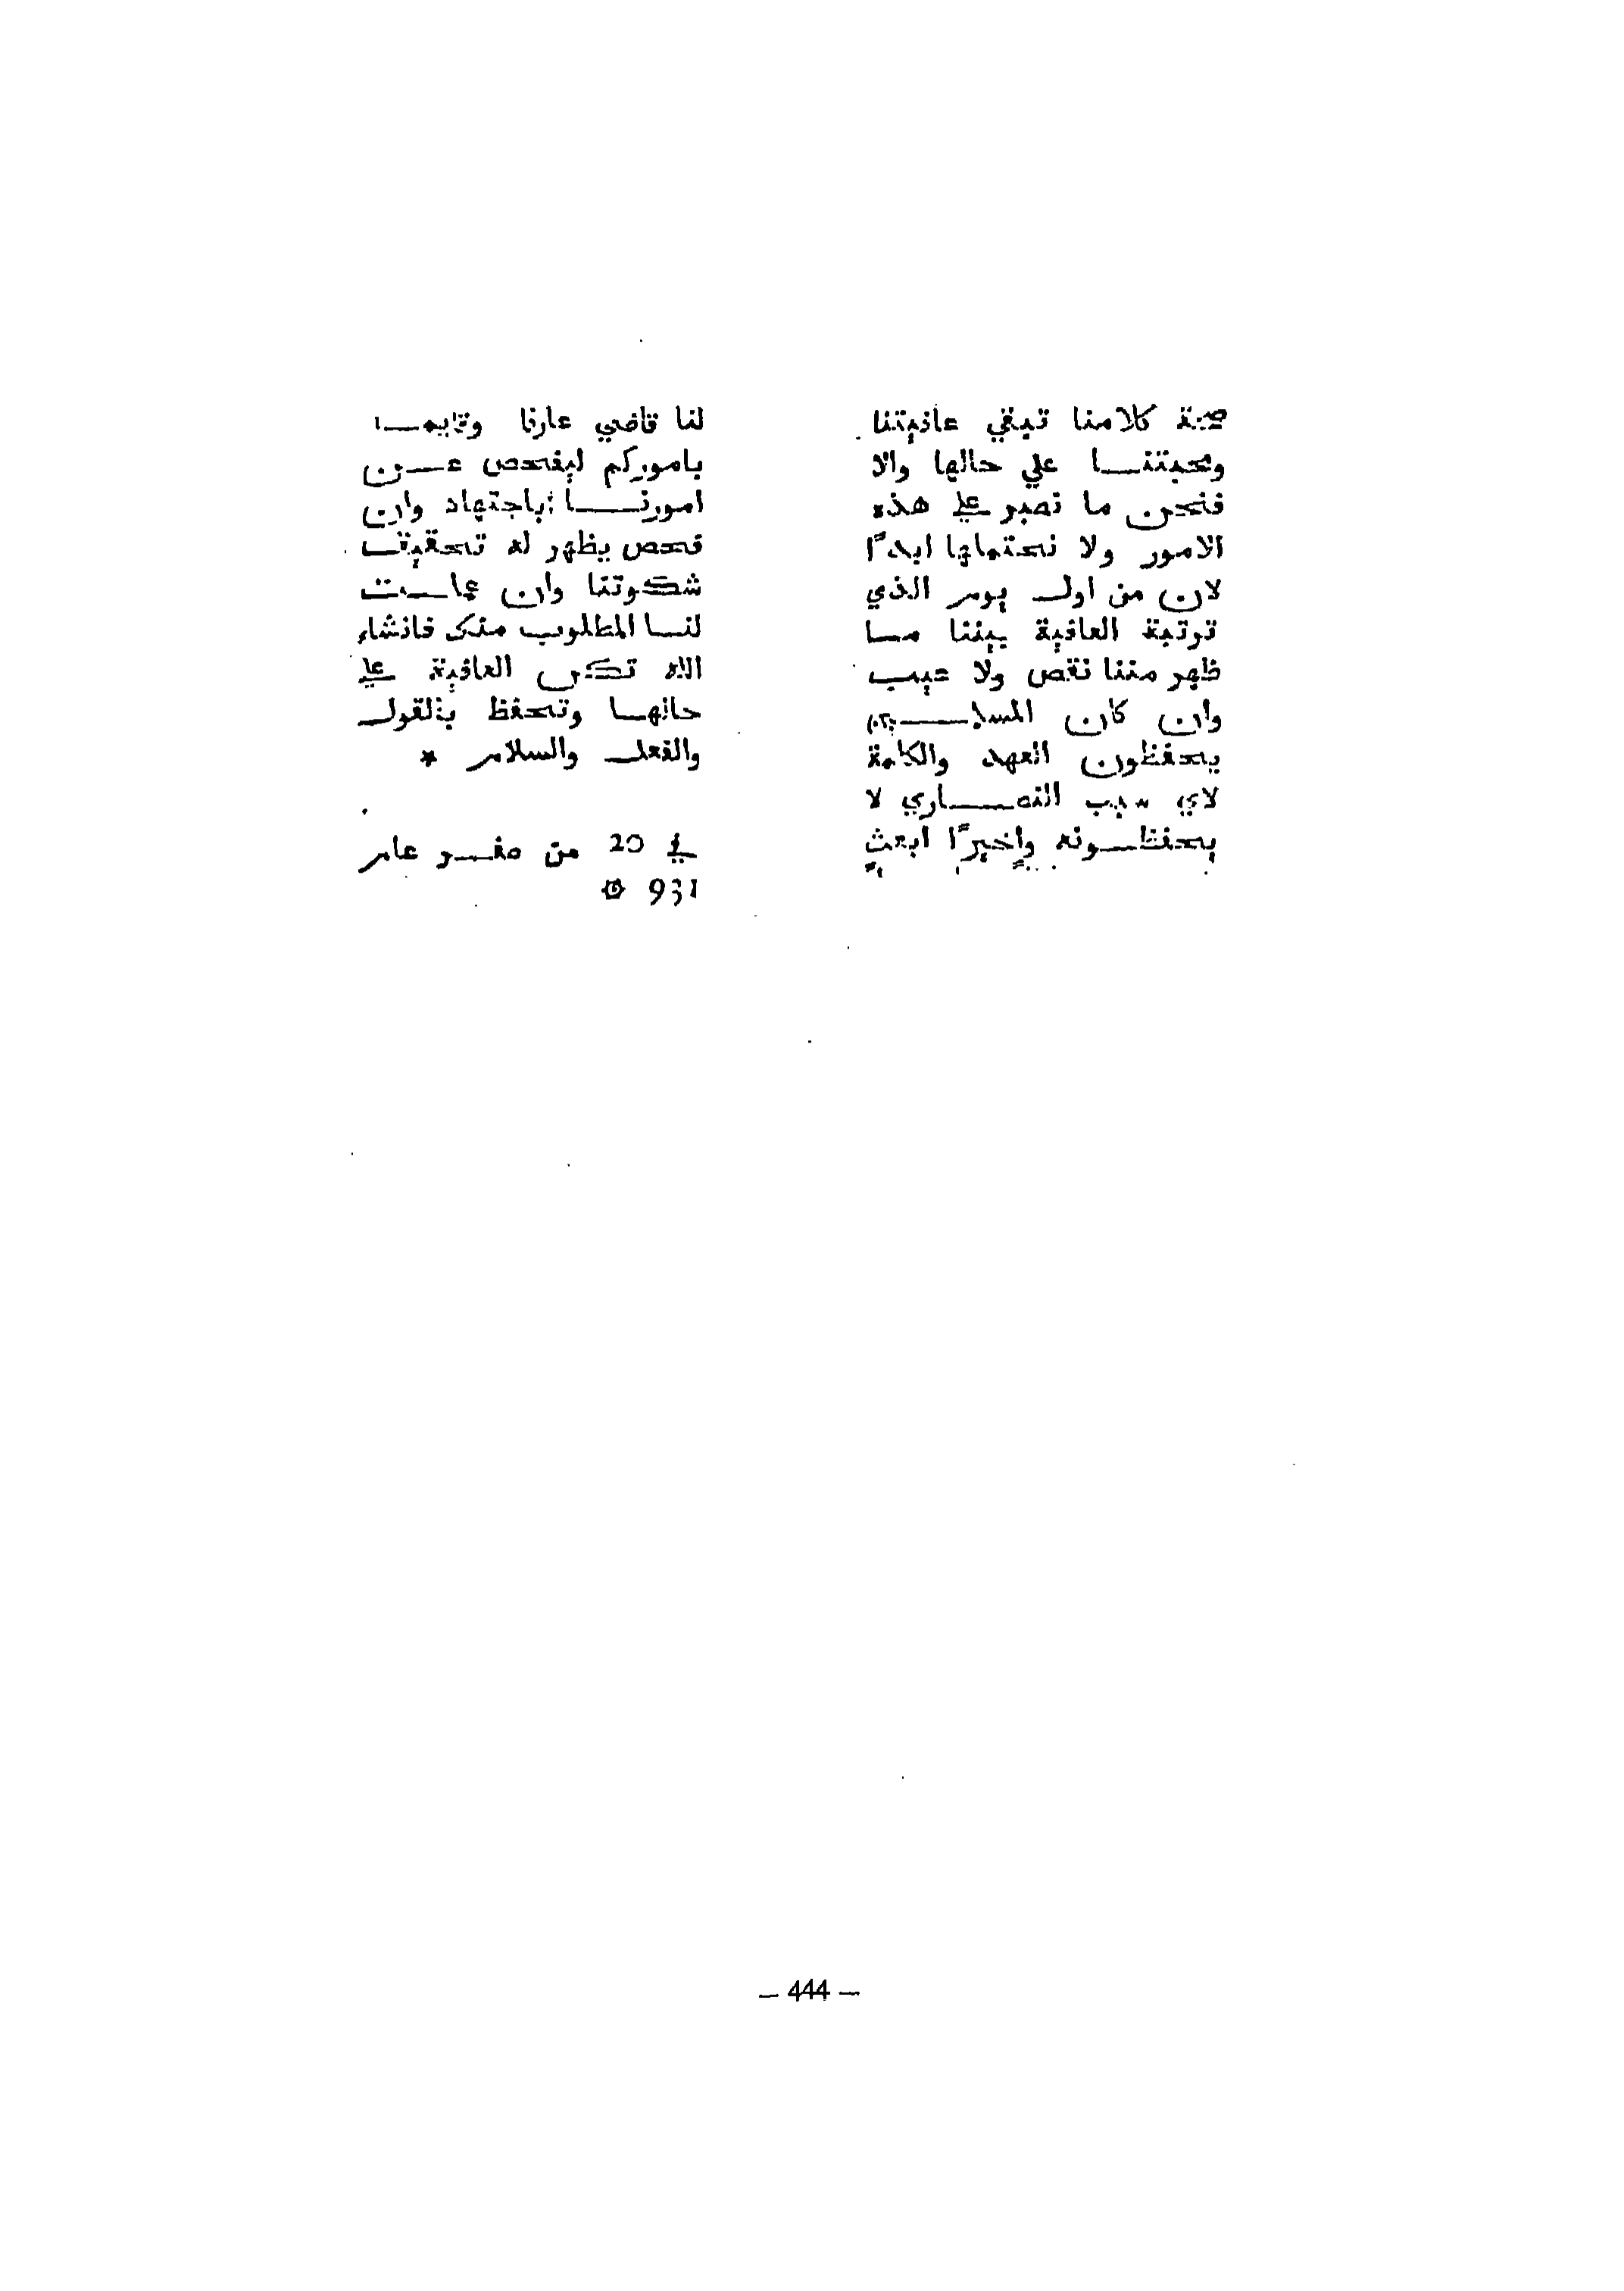 صحة كلامنا تبقي عافيتنا
ومحبتنـــا علي حالها والا
فنحن ما نصبر علي هذه
الامور ولا نحتملها ابدًا
لان من اول يوم الذي
ترتبة العافية بيننا مـــا
ظهر مننا نقص ولا عيب
وان كان المسلـــمين
يحفظون العهد والكلمة
لاي سبب النصـــاري لا
يحفظـــونه واخيرًا ابعث
لنا قاضي عارفا
باموركم ليفحص عـــن
امورنـــا باجتهاد وان
فحص يظهر له تحقيق
شكوتنا وان
لنـــا المطلوب منك فانشاء
الله تكن العافية علي
حالهـــا وتحفظ بالقول
والفعل والسلام *
في 20 من صفـــر عام
931
– 444 –